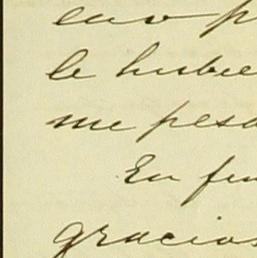 caso p
le hubie
me pesa
En fin
gracias